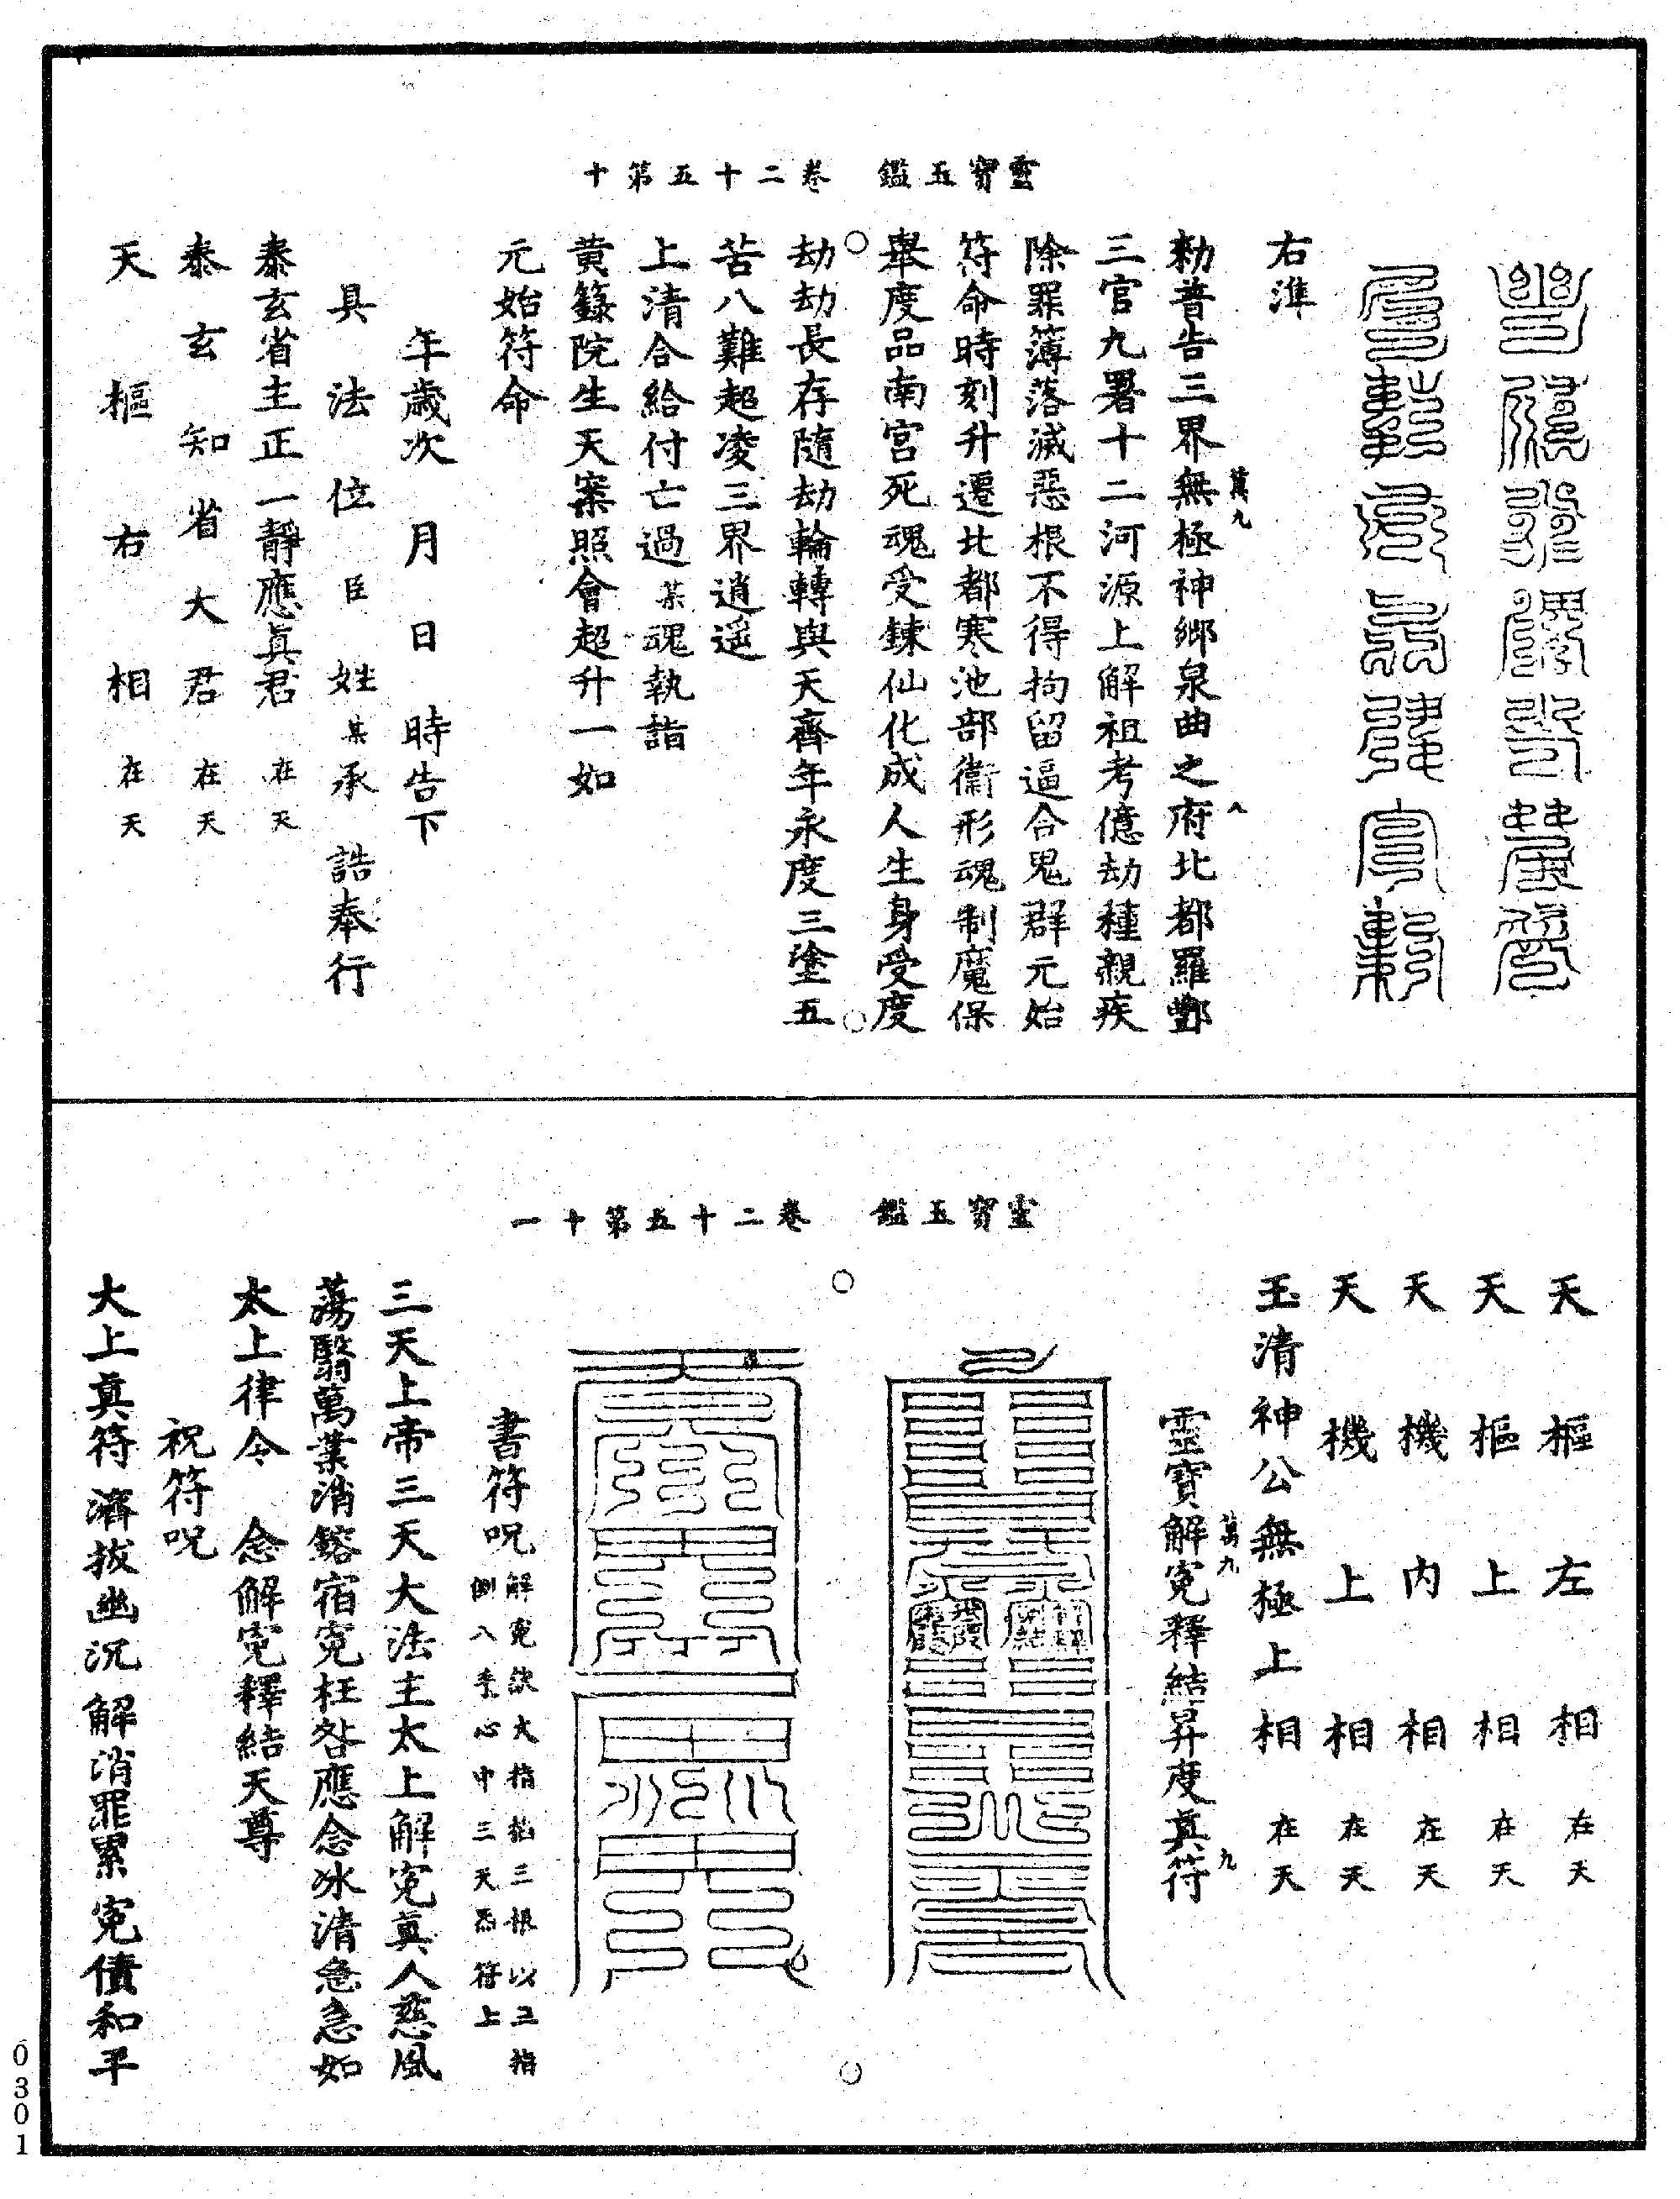 靈寶玉鑑　卷二十五第十
右準
勑普告三界無極神鄉泉曲之府北都羅酆
萬九
八
三官九署十二河源上解祖考億劫種親疾
除罪簿落滅惡根不得拘留逼合鬼群元始
符命時刻升遷北都寒池部衛形魂制魔保
舉度品南宮死魂受鍊仙化成人生身受度
劫劫長存隨劫輪轉與天齊年永度三塗五
苦八難超凌三界逍遥
上清合給付亡過某魂執詣
黃籙院生天案照會超升一如
元始符命
年歲次　月　日　時告下
具法位臣姓某承誥奉行
泰玄省主正一靜應眞君在天
泰玄知省大君在天
天樞右相在天
靈寶玉鑑　卷二十五第十一
天樞左相在天
天樞上相在天
天機內相在天
天機上相在天
玉清神公無極上相在天
靈寶解寃釋結昇度眞符
萬九
九
書符呪解寃訣大指掐三根以三指
側入手心中三天炁符上
三天上帝三天大法主太上解寃眞人慈風
蕩翳萬業消鎔宿寃枉咎應念冰清急急如
太上律令　念解寃釋結天尊
祝符呪
大上眞符濟拔幽沉解消罪累寃債和平
0301